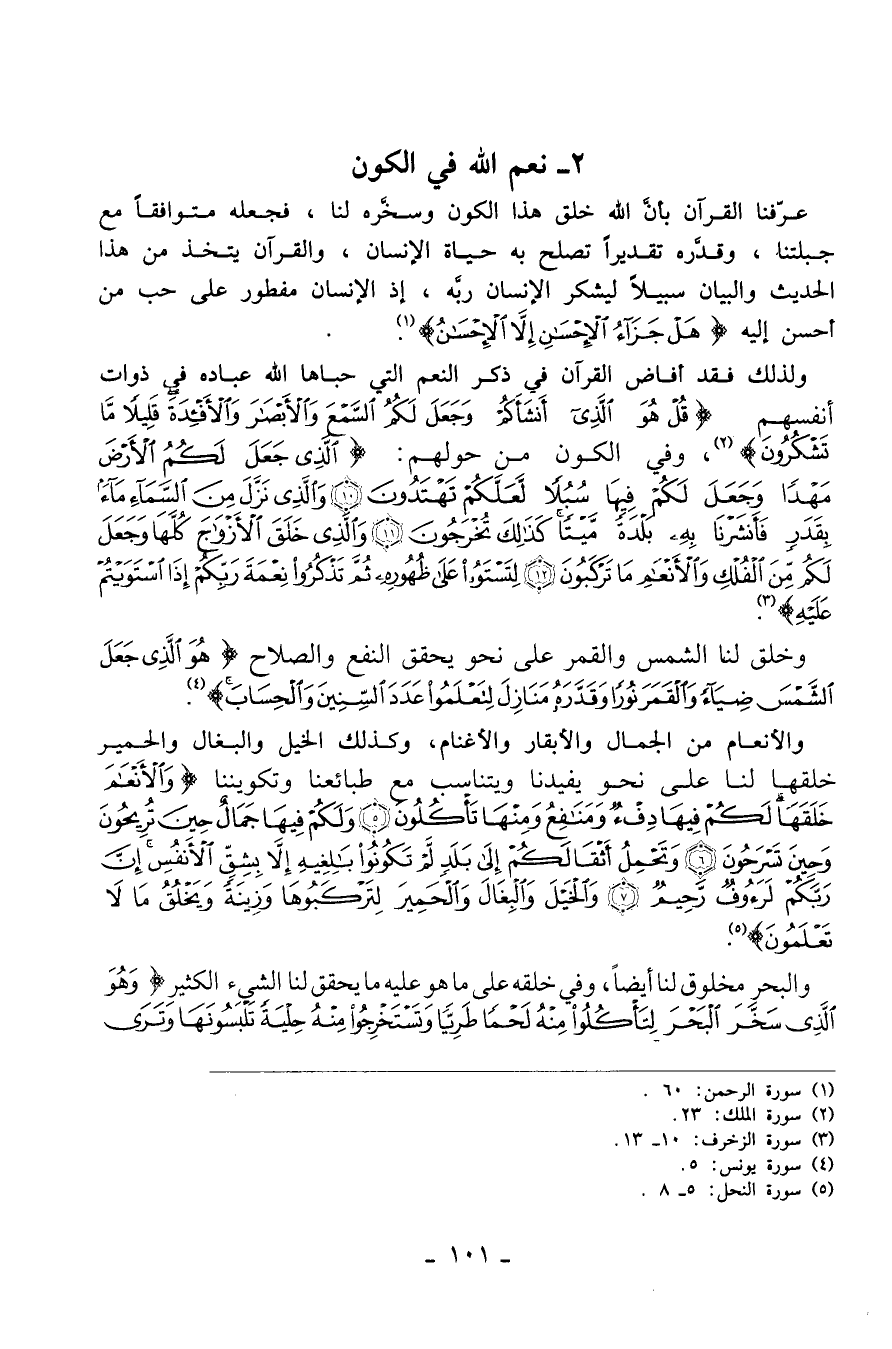 ٢ـ نعم الله في الكون
عرّفنا القرآن بأنَّ الله خلق هذا الكون وسخَّره لنا ، فجعله متوافقاً مع
جبلتنا ، وقدَّره تقديراً تصلح به حياة الإنسان ، والقرآن يتخذ من هذا
الحديث والبيان سبيلاً ليشكر الإنسان ربَّه ، إذ الإنسان مفطور على حب من
أحسن إليه ﴿ هَلْ جَزَآءُ ٱلْإِحْسَٰنِ إِلَّا ٱلْإِحْسَٰنُ ﴾(١).
ولذلك فقد أفاض القرآن في ذكر النعم التي حباها الله عباده في ذوات
أنفسهم ﴿ قُلْ هُوَ ٱلَّذِىٓ أَنشَأَكُمْ وَجَعَلَ لَكُمُ ٱلسَّمْعَ وَٱلْأَبْصَٰرَ وَٱلْأَفْـِٔدَةَ قَلِيلًا مَّا
تَشْكُرُونَ ﴾(٢)، وفي الكون من حولهم: ﴿ ٱلَّذِى جَعَلَ لَكُمُ ٱلْأَرْضَ
مَهْدًا وَجَعَلَ لَكُمْ فِيهَا سُبُلًا لَّعَلَّكُمْ تَهْتَدُونَ ۝١٠ وَٱلَّذِى نَزَّلَ مِنَ ٱلسَّمَآءِ مَآءًۢ
بِقَدَرٍ فَأَنشَرْنَا بِهِۦ بَلْدَةً مَّيْتًا ۚ كَذَٰلِكَ تُخْرَجُونَ ۝١١ وَٱلَّذِى خَلَقَ ٱلْأَزْوَٰجَ كُلَّهَا وَجَعَلَ
لَكُم مِّنَ ٱلْفُلْكِ وَٱلْأَنْعَٰمِ مَا تَرْكَبُونَ ۝١٢ لِتَسْتَوُۥا۟ عَلَىٰ ظُهُورِهِۦ ثُمَّ تَذْكُرُوا۟ نِعْمَةَ رَبِّكُمْ إِذَا ٱسْتَوَيْتُمْ
عَلَيْهِ ﴾(٣).
وخلق لنا الشمس والقمر على نحو يحقق النفع والصلاح ﴿ هُوَ ٱلَّذِى جَعَلَ
ٱلشَّمْسَ ضِيَآءً وَٱلْقَمَرَ نُورًا وَقَدَّرَهُۥ مَنَازِلَ لِتَعْلَمُوا۟ عَدَدَ ٱلسِّنِينَ وَٱلْحِسَابَ ۚ ﴾(٤).
والأنعام من الجمال والأبقار والأغنام، وكذلك الخيل والبغال والحمير
خلقها لنا على نحو يفيدنا ويتناسب مع طبائعنا وتكويننا ﴿ وَٱلْأَنْعَٰمَ
خَلَقَهَا ۗ لَكُمْ فِيهَا دِفْءٌ وَمَنَٰفِعُ وَمِنْهَا تَأْكُلُونَ ۝٥ وَلَكُمْ فِيهَا جَمَالٌ حِينَ تُرِيحُونَ
وَحِينَ تَسْرَحُونَ ۝٦ وَتَحْمِلُ أَثْقَالَكُمْ إِلَىٰ بَلَدٍ لَّمْ تَكُونُوا۟ بَٰلِغِيهِ إِلَّا بِشِقِّ ٱلْأَنفُسِ ۚ إِنَّ
رَبَّكُمْ لَرَءُوفٌ رَّحِيمٌ ۝٧ وَٱلْخَيْلَ وَٱلْبِغَالَ وَٱلْحَمِيرَ لِتَرْكَبُوهَا وَزِينَةً ۚ وَيَخْلُقُ مَا لَا
تَعْلَمُونَ ﴾(٥).
والبحر مخلوق لنا أيضاً، وفي خلقه على ما هو عليه ما يحقق لنا الشيء الكثير ﴿ وَهُوَ
ٱلَّذِى سَخَّرَ ٱلْبَحْرَ لِتَأْكُلُوا۟ مِنْهُ لَحْمًا طَرِيًّا وَتَسْتَخْرِجُوا۟ مِنْهُ حِلْيَةً تَلْبَسُونَهَا وَتَرَى
(١) سورة الرحمن: ٦٠ .
(٢) سورة الملك: ٢٣.
(٣) سورة الزخرف: ١٠ـ ١٣.
(٤) سورة يونس: ٥.
(٥) سورة النحل: ٥ـ ٨ .
ـ ١٠١ ـ